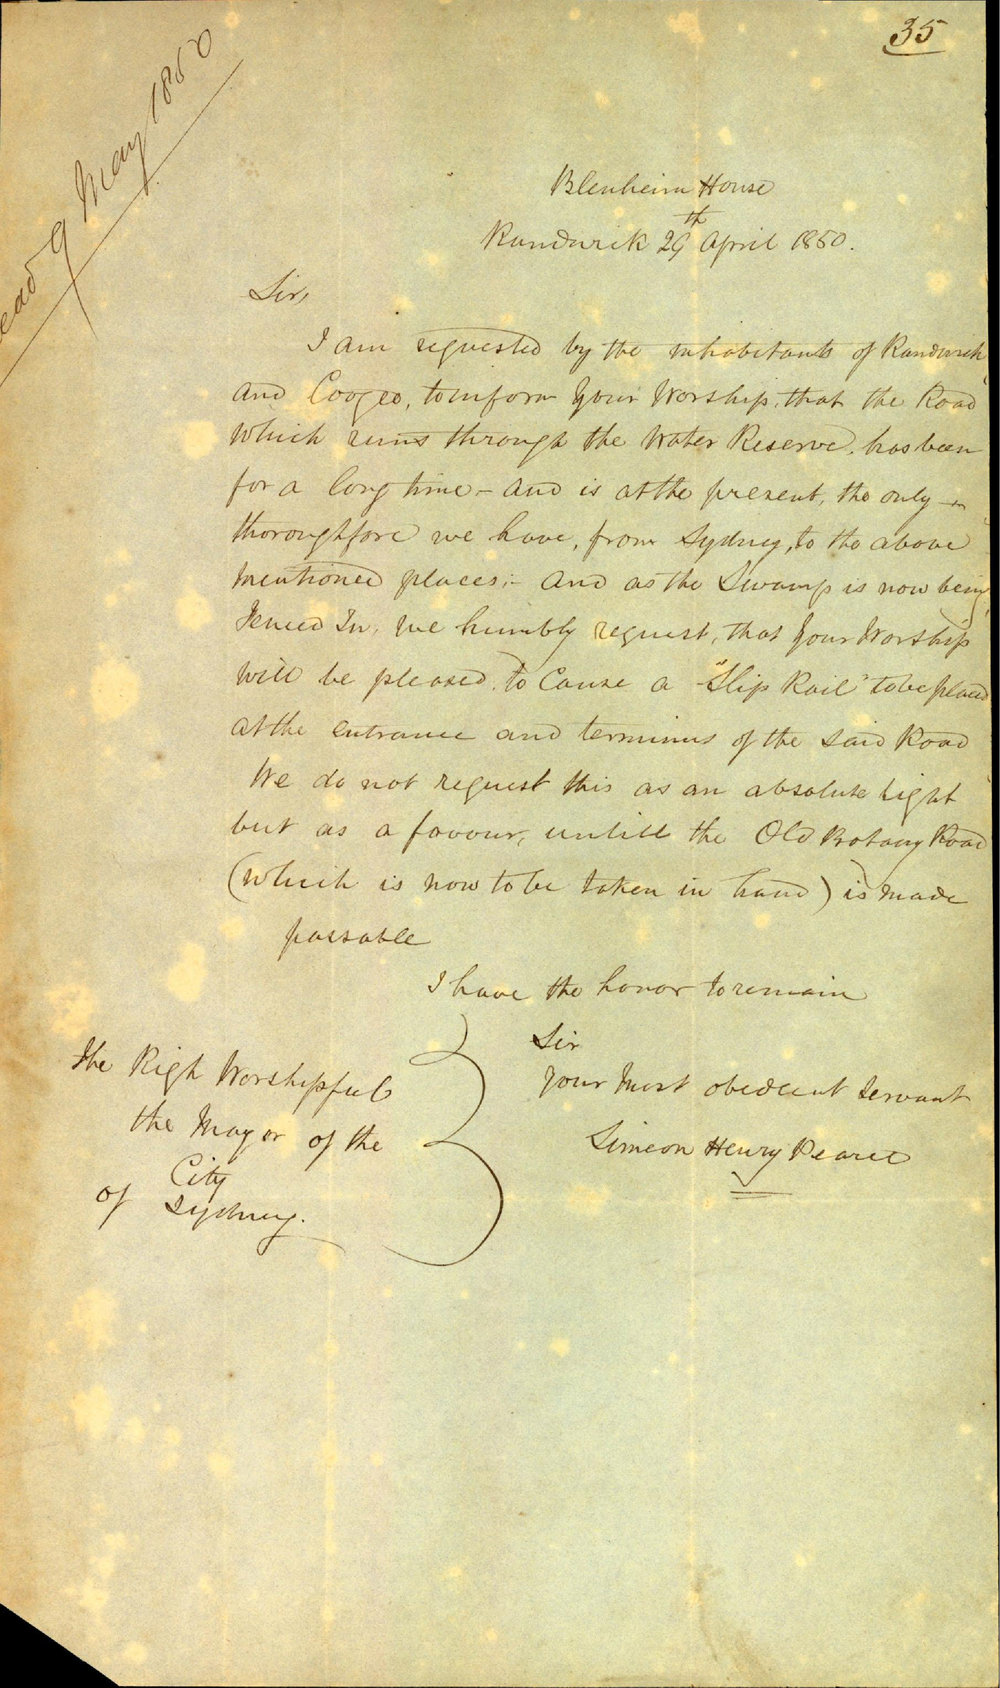 35
Read 9 May 1850
Blenheim House
Randwick 29th April 1850.
Sir,
I am requested by the inhabitants of Randwick
and Coogeo, to inform Your Worship, that the Road
which runs through the Water Reserve, has been
for a long time - and is at the present, the only
thoroughfore we have, from Sydney, to the above
mentioned places; - and as the Swamp is now being
Fenced In, we humbly request, that Your Worship
will be pleased, to Cause a "Slip Rail" to be placed
at the entrance and terminus of the said Road
We do not request this as an absolute right
but as a favour, untill the Old Botany Road
(which is now to be taken in hand) is made
passable
I have the honor to remain
Sir
Your most obedient Servant
Simeon Henry Pearce
The Righ Worshipful
the Mayor of the
City
of Sydney.